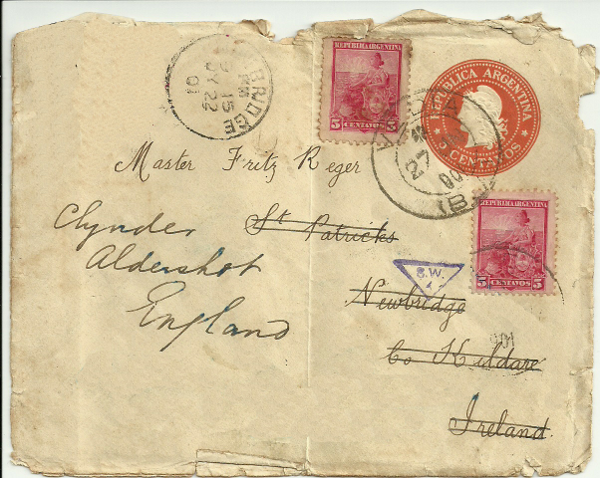 BRIDGE
15
JY 22
01
REPUBLICA ARGENTINA
5 CENTAVOS 5
REPUBLICA ARGENTINA
5 CENTAVOS
27
(B.
Master Fritz Reger
St Patricks
Newbridge
Co Kildare
Ireland
Clynder
Aldershot
England
S.W.
REPUBLICA ARGENTINA
5 CENTAVOS 5